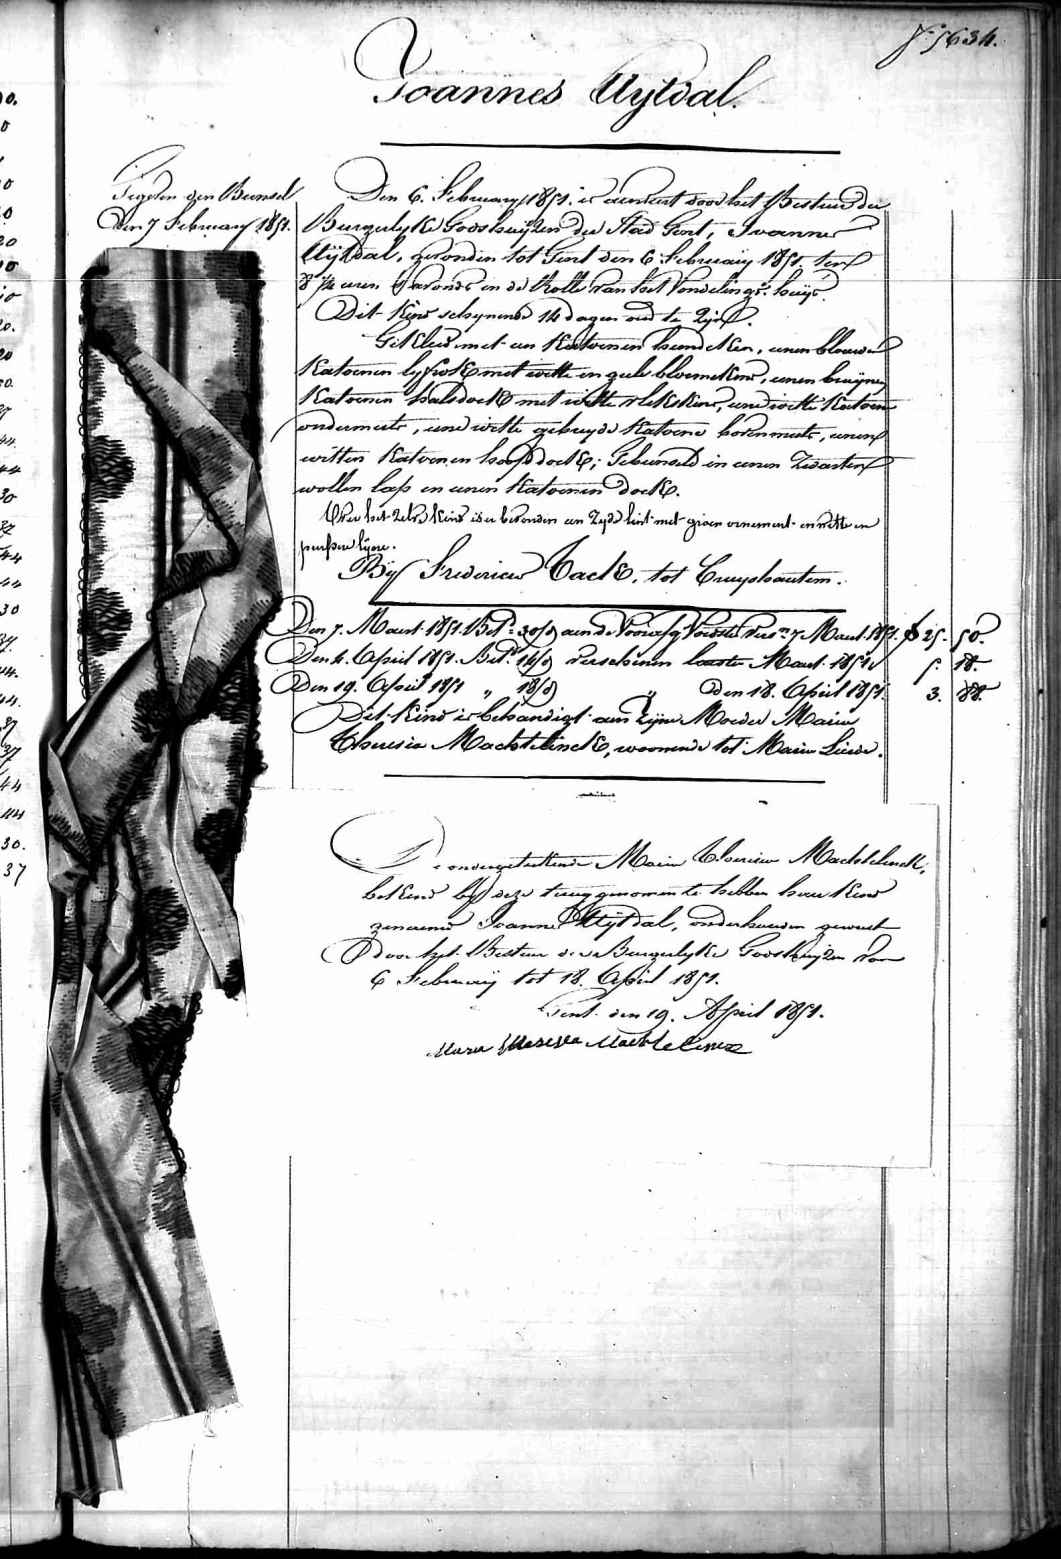 f° 1634.
Joannes Uytdal.
den Bunsel
den 7 February 1851.
Den 6. February 1851. is aenveert door het Bestuur der
Burgerlyke Godshuyzen der Stad Gent, Joannes
Uytdal, gevonden tot Gent den 6 February 1851, ten
8 1/4 uren 's avonds in de Rolle van het Vondelings huys.
Dit Kind schynende 14 dagen oud te zyn.
Gekleed met een Katoenen hemdeken, eenen blauwen
Katoenen lyfrok met witte en geele bloemekens, eenen bruynen
Katoenen halsdoek met witte vlekskens, eene witte Katoene
ondermuts, eene witte gebreyde Katoene bovenmuts, eenen
witten Katoenen hoofddoek; Gebunseld in eenen Zwarten
wollen lap en eenen Katoenen doek.
Over het zelve Kind is er bevonden een Zyde lint met groen ornement en witte en
pursere lynen.
By Fredericus Tack, tot Cruyshautem.
Den 7. Maert 1851. Bet. 30/9 aen de Voedster 7 Maert 1851. f 25. 50.
Den 4. April 1851. Bet. 14/9 verschenen laeste Maert 1851. 5. 18.
Den 19. April 1851 " 18/9 " den 18. April 1851. 3. 88.
Dit Kind is behandigt aen zyne Moeder Maria
Theresia Machtelinck, woonende tot Maria Lierde.
De ondergeteekende Maria Theresia Machtelinck,
bekend by deze terug genomen te hebben haer Kind
genaemd Joannes Uytdal, onderhouden geweest
door het Bestuur der Burgerlyke Godshuyzen van
6 February tot 18. April 1851.
Gent den 19. April 1851.
Maria Theresia Machtelinck